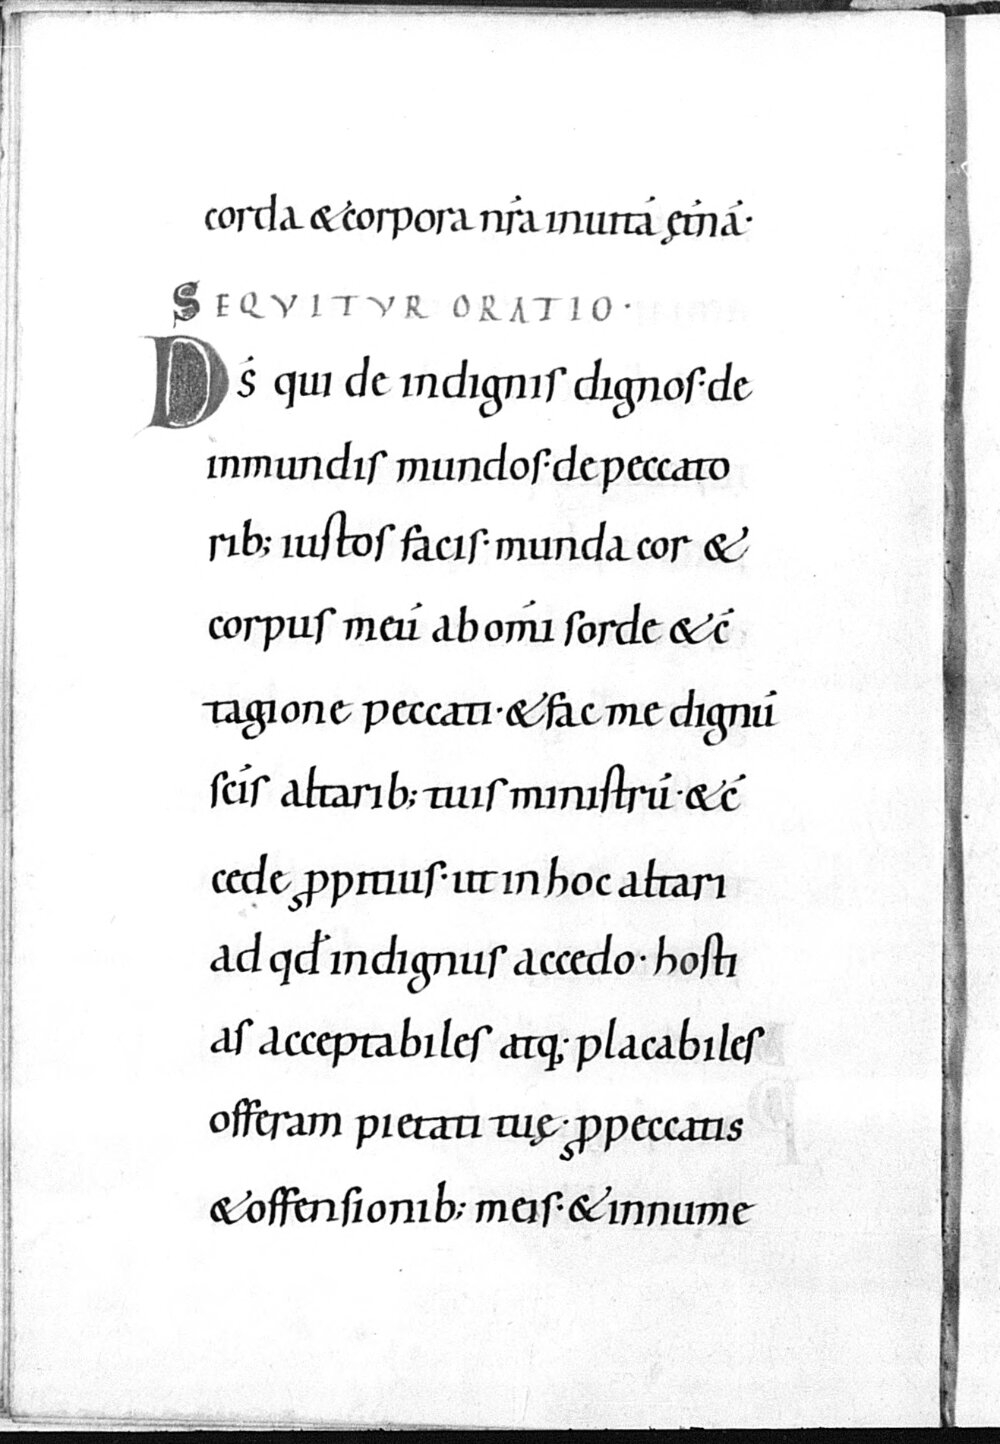 corda & corpora nr̄a in uitā ętnā·
SEQVITVR ORATIO·
Ds̄ qui de indignis dignos· de
inmundis mundos· de peccato
rib; iustos facis· munda cor &
corpus meū ab om̄i sorde & c̄
tagione peccati· & fac me dignū
sc̄is altarib; tuis ministrū· & c̄
cede ꝓpitius· ut in hoc altari
ad qđ indignus accedo· hosti
as acceptabiles atq; placabiles
offeram pietati tuę· ꝓ peccatis
& offensionib; meis· & innume